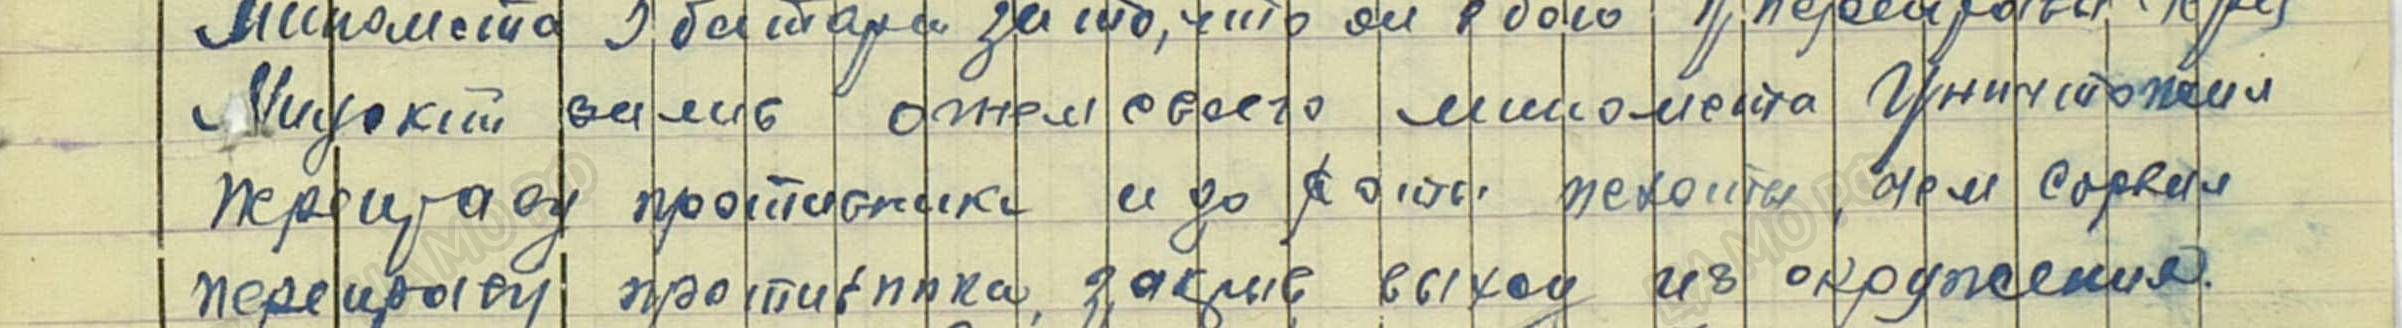 Миномета 3 батареи за то, что он в бою у переправы через
залив огнем своего миномета Уничтожил
переправу противника и до роты пехоты, чем сорвал
переправу противника, закрыв выход из окружения.